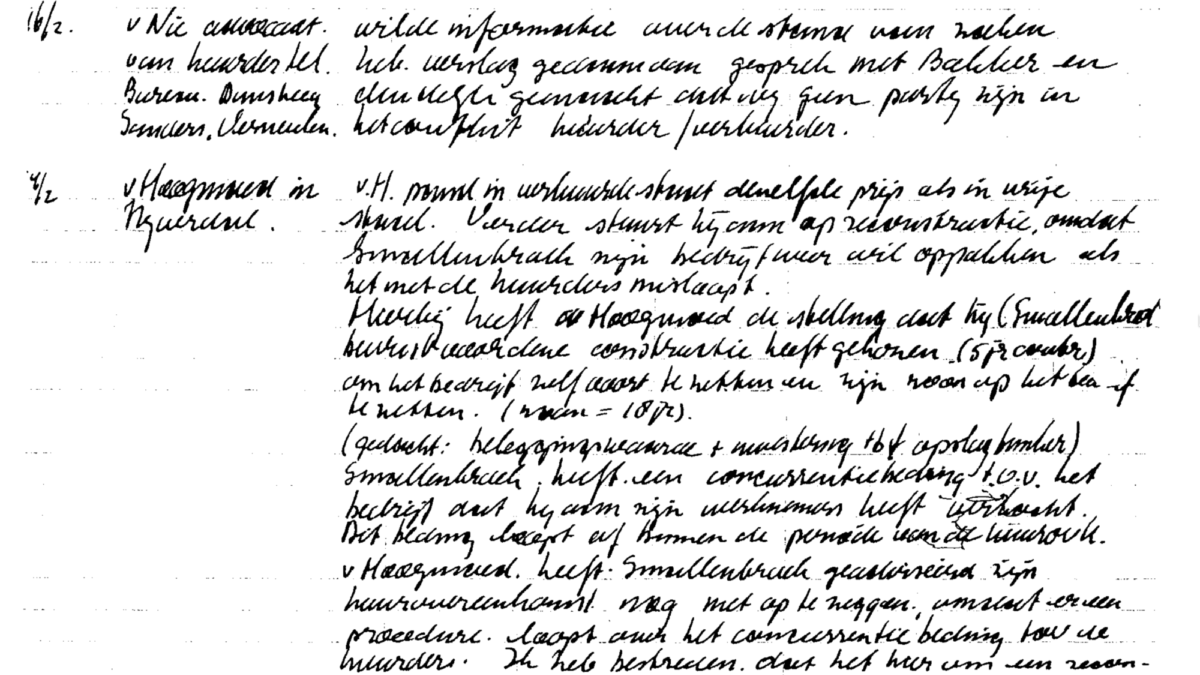 16/2. v Nie advocaat. wilde informatie over de stand van zaken
van huurder tel. heb verslag gedaan van gesprek met Bakker en
Bureau. duidelijk gemaakt dat wij geen partij zijn in
Sanders, Vermeulen. het conflict huurder/verhuurder.
/2 v Hoogmoed in v.H. pand in verhuurde staat dezelfde prijs als in vrije
Nijverdal. staat. Verder stuurt hij aan op reconstructie, omdat
Smallenbroek zijn bedrijf weer wil oppakken als
het met de huurders misloopt.
Hierbij heeft v Hoogmoed de stelling dat hij (Smallenbroek
bewust voor deze constructie heeft gekozen (5 jr contr)
om het bedrijf zelf voort te zetten en zijn zoon op het been
te zetten. (zoon = 18 jr).
(gedacht: beleggingswaarde + investering tbv opslag bunker)
Smallenbroek heeft een concurrentiebeding t.o.v. het
bedrijf dat hij aan zijn werknemers heeft verkocht.
Dit beding loopt af binnen de periode van de huurovk.
v Hoogmoed heeft Smallenbroek geadviseerd zijn
huurovereenkomst nog niet op te zeggen, omdat er een
procedure loopt over het concurrentiebeding tov de
huurders. Ik heb bestreden dat het hier om een recon-